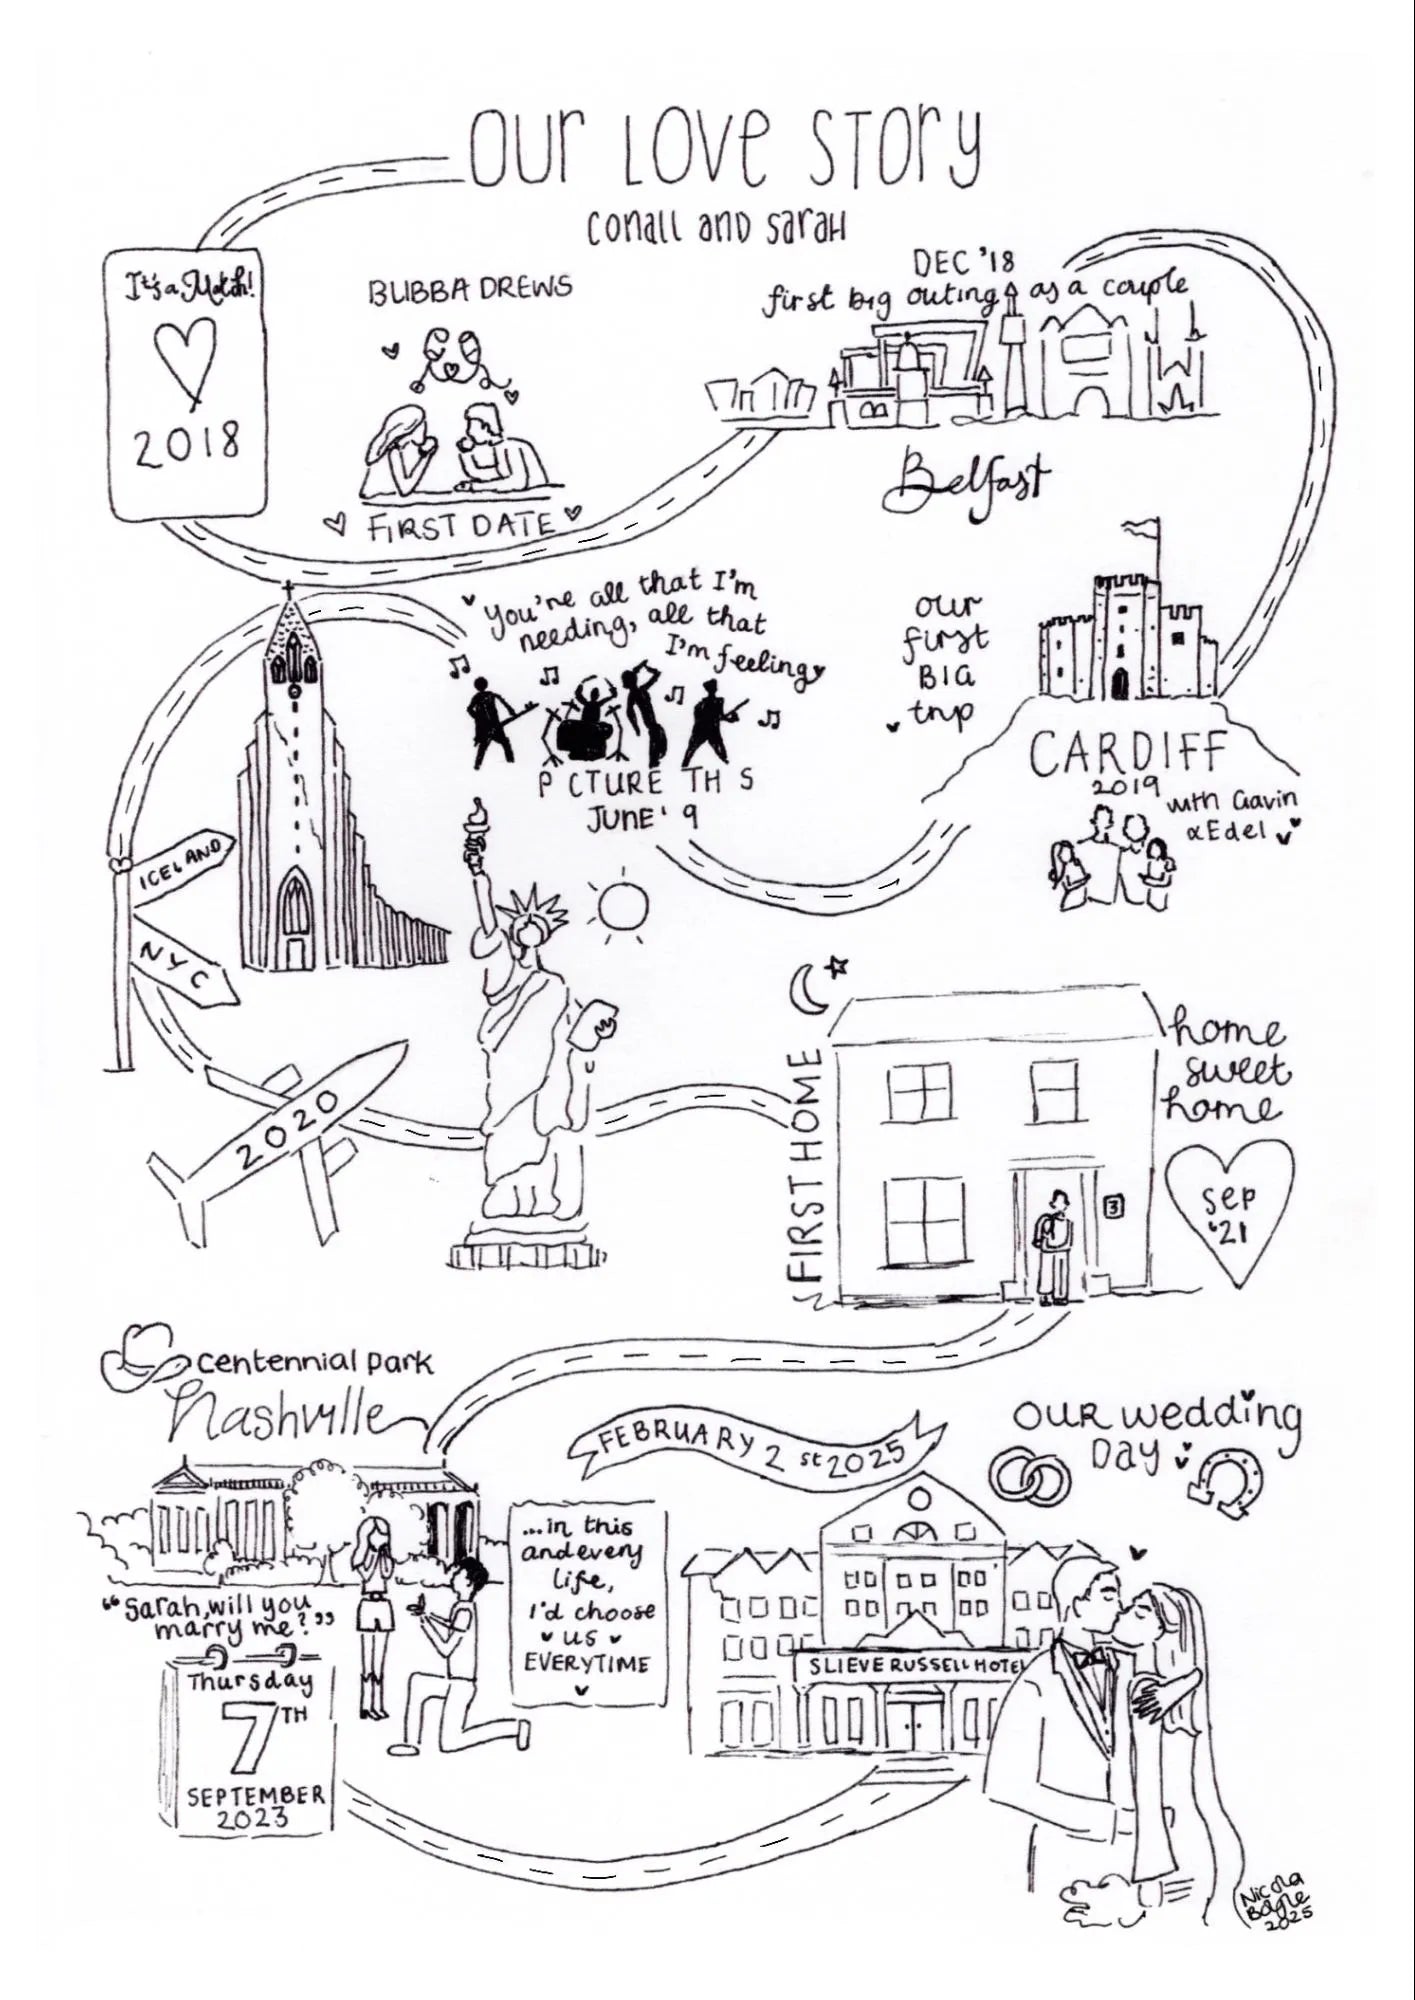 OUR LOVE STORY
CONALL AND SARAH
It's a Match!
2018
BUBBA DREWS
FIRST DATE
DEC '18
first big outing as a couple
Belfast
our
first
BIG
trip
CARDIFF
2019
with Gavin
& Edel
You're all that I'm
needing, all that
I'm feeling
P CTURE TH S
JUNE ' 9
ICELAND
NYC
2020
FIRST HOME
home
sweet
home
3
Sep
'21
Centennial Park
Nashville
"Sarah, will you
marry me?"
Thursday
7TH
SEPTEMBER
2023
...in this
and every
life,
I'd choose
us
EVERYTIME
FEBRUARY 2 st 2025
OUR Wedding
DAY
SLIEVE RUSSELL HOTEL
Nicola
2025